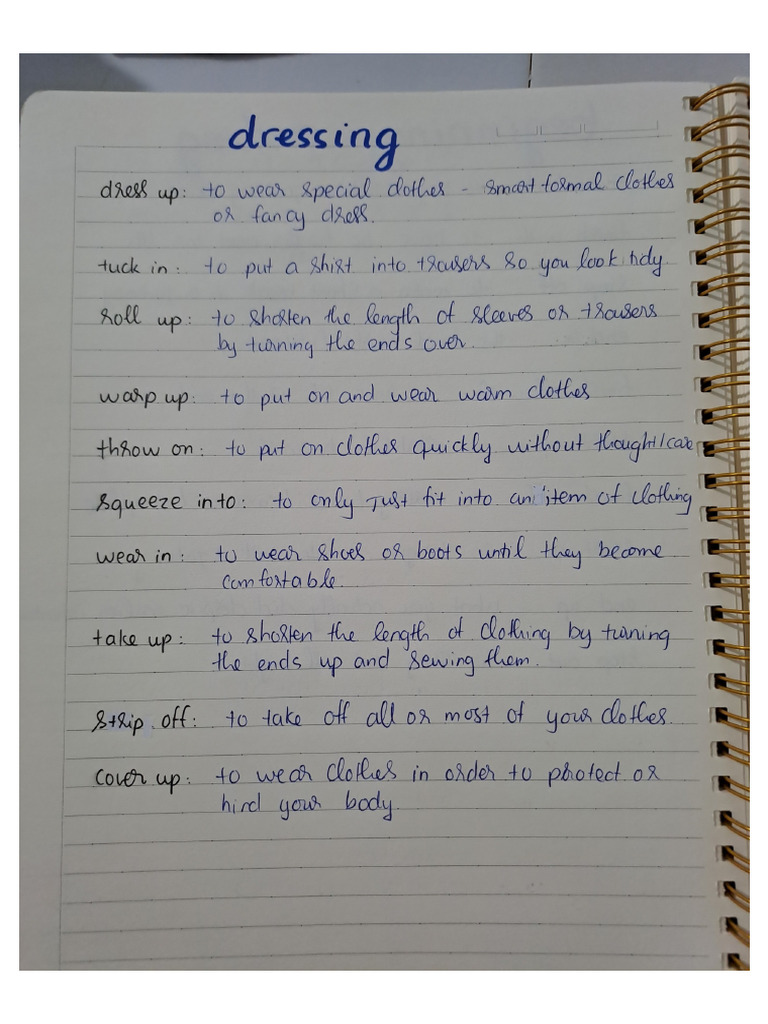 dressing
dress up: to wear special clothes - smart formal clothes
or fancy dress.
tuck in: to put a shirt into trousers so you look tidy.
roll up: to shorten the length of sleeves or trousers
by turning the ends over.
warp up: to put on and wear warm clothes
throw on: to put on clothes quickly without thought/care
squeeze into: to only just fit into an item of clothing
wear in: to wear shoes or boots until they become
comfortable.
take up: to shorten the length of clothing by turning
the ends up and sewing them.
strip off: to take off all or most of your clothes.
cover up: to wear clothes in order to protect or
hind your body.